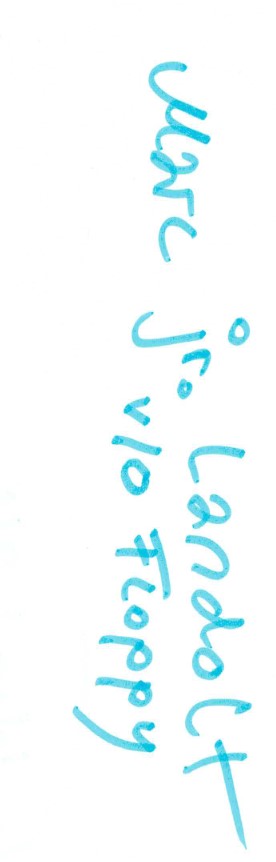 Marc jr. Landolt
v/o Floppy